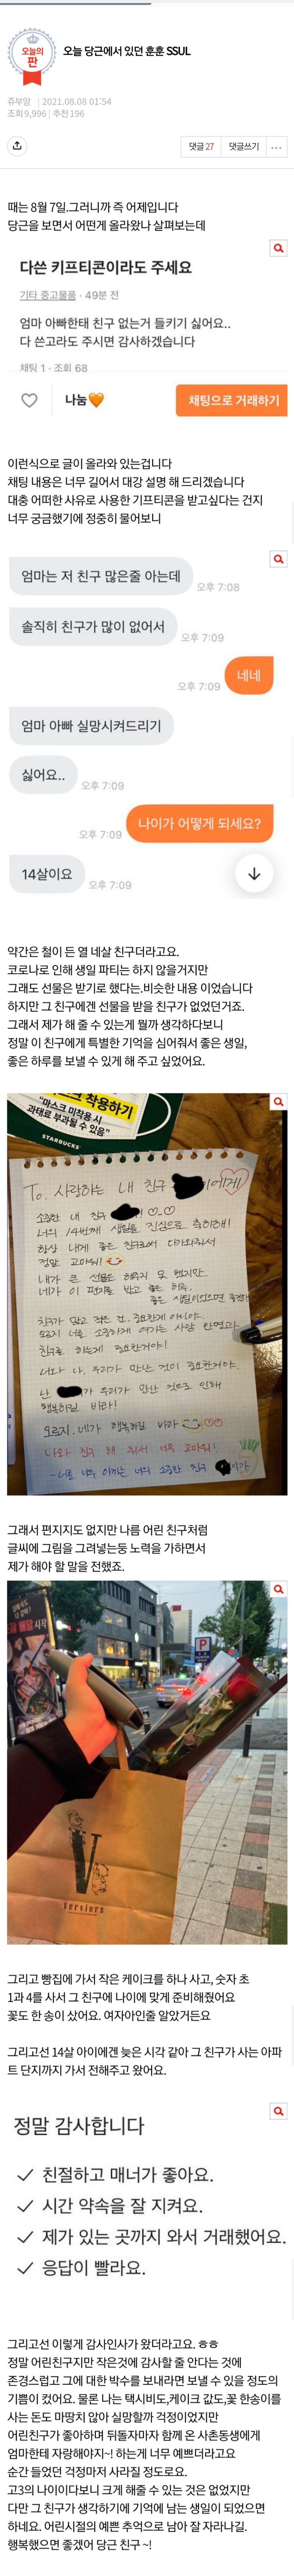 오늘의
판
오늘 당근에서 있던 훈훈 SSUL
쥬부앙 | 2021.08.08 01:54
조회 9,996 | 추천 196
댓글 27
댓글쓰기
때는 8월 7일.그러니까 즉 어제입니다
당근을 보면서 어떤게 올라왔나 살펴보는데
다쓴 키프티콘이라도 주세요
기타 중고물품 · 49분 전
엄마 아빠한태 친구 없는거 들키기 싫어요..
다 쓴고라도 주시면 감사하겠습니다
채팅 1 · 조회 68
나눔🧡
채팅으로 거래하기
이런식으로 글이 올라와 있는겁니다
채팅 내용은 너무 길어서 대강 설명 해 드리겠습니다
대충 어떠한 사유로 사용한 기프티콘을 받고싶다는 건지
너무 궁금했기에 정중히 물어보니
엄마는 저 친구 많은줄 아는데
오후 7:08
솔직히 친구가 많이 없어서
오후 7:09
네네
오후 7:09
엄마 아빠 실망시켜드리기
싫어요..
오후 7:09
나이가 어떻게 되세요?
오후 7:09
14살이요
오후 7:09
약간은 철이 든 열 네살 친구더라고요.
코로나로 인해 생일 파티는 하지 않을거지만
그래도 선물은 받기로 했다는.비슷한 내용 이었습니다
하지만 그 친구에겐 선물을 받을 친구가 없었던거죠.
그래서 제가 해 줄 수 있는게 뭘까 생각하다보니
정말 이 친구에게 특별한 기억을 심어줘서 좋은 생일,
좋은 하루를 보낼 수 있게 해 주고 싶었어요.
마스크 착용하기
"마스크 미착용시
과태료 부과될 수 있음"
STARBUCKS
To. 사랑하는 내 친구 에게!
소중한 내 친구
너의 14번째 생일을 진심으로 축하해!
항상 내게 좋은 친구로서 다가와줘서
정말 고마워!
내가 큰 선물은 해주지 못 했지만,
네가 이 편지를 받고
좋은 생일이었으면 좋겠어
친구가 많고 적은 건, 중요한게 아니야.
너를 소중하게 여기는 사람 한명이
친구로 함께하는게 중요한거야!
너와 나, 우리가 만난 것이 중요한거야.
난 가 우리가 만난 것으로 인해
행복하길 바라!
오로지. 네가 행복하길 바라
나와 친구 해 줘서 너무 고마워!
-너를 너무 아끼는 너의 소중한 친구
그래서 편지지도 없지만 나름 어린 친구처럼
글씨에 그림을 그려넣는둥 노력을 가하면서
제가 해야 할 말을 전했죠.
시작
P
V
verviers
그리고 빵집에 가서 작은 케이크를 하나 사고, 숫자 초
1과 4를 사서 그 친구에 나이에 맞게 준비해줬어요
꽃도 한 송이 샀어요. 여자아인줄 알았거든요
그리고선 14살 아이에겐 늦은 시각 같아 그 친구가 사는 아파
트 단지까지 가서 전해주고 왔어요.
정말 감사합니다
✓ 친절하고 매너가 좋아요.
✓ 시간 약속을 잘 지켜요.
✓ 제가 있는 곳까지 와서 거래했어요.
✓ 응답이 빨라요.
그리고선 이렇게 감사인사가 왔더라고요. ㅎㅎ
정말 어린친구지만 작은것에 감사할 줄 안다는 것에
존경스럽고 그에 대한 박수를 보내라면 보낼 수 있을 정도의
기쁨이 컸어요. 물론 나는 택시비도,케이크 값도,꽃 한송이를
사는 돈도 마땅치 않아 실망할까 걱정이었지만
어린친구가 좋아하며 뒤돌자마자 함께 온 사촌동생에게
엄마한테 자랑해야지~! 하는게 너무 예쁘더라고요
순간 들었던 걱정마저 사라질 정도로요.
고3의 나이이다보니 크게 해줄 수 있는 것은 없었지만
다만 그 친구가 생각하기에 기억에 남는 생일이 되었으면
하네요. 어린시절의 예쁜 추억으로 남아 잘 자라나길.
행복했으면 좋겠어 당근 친구 ~!